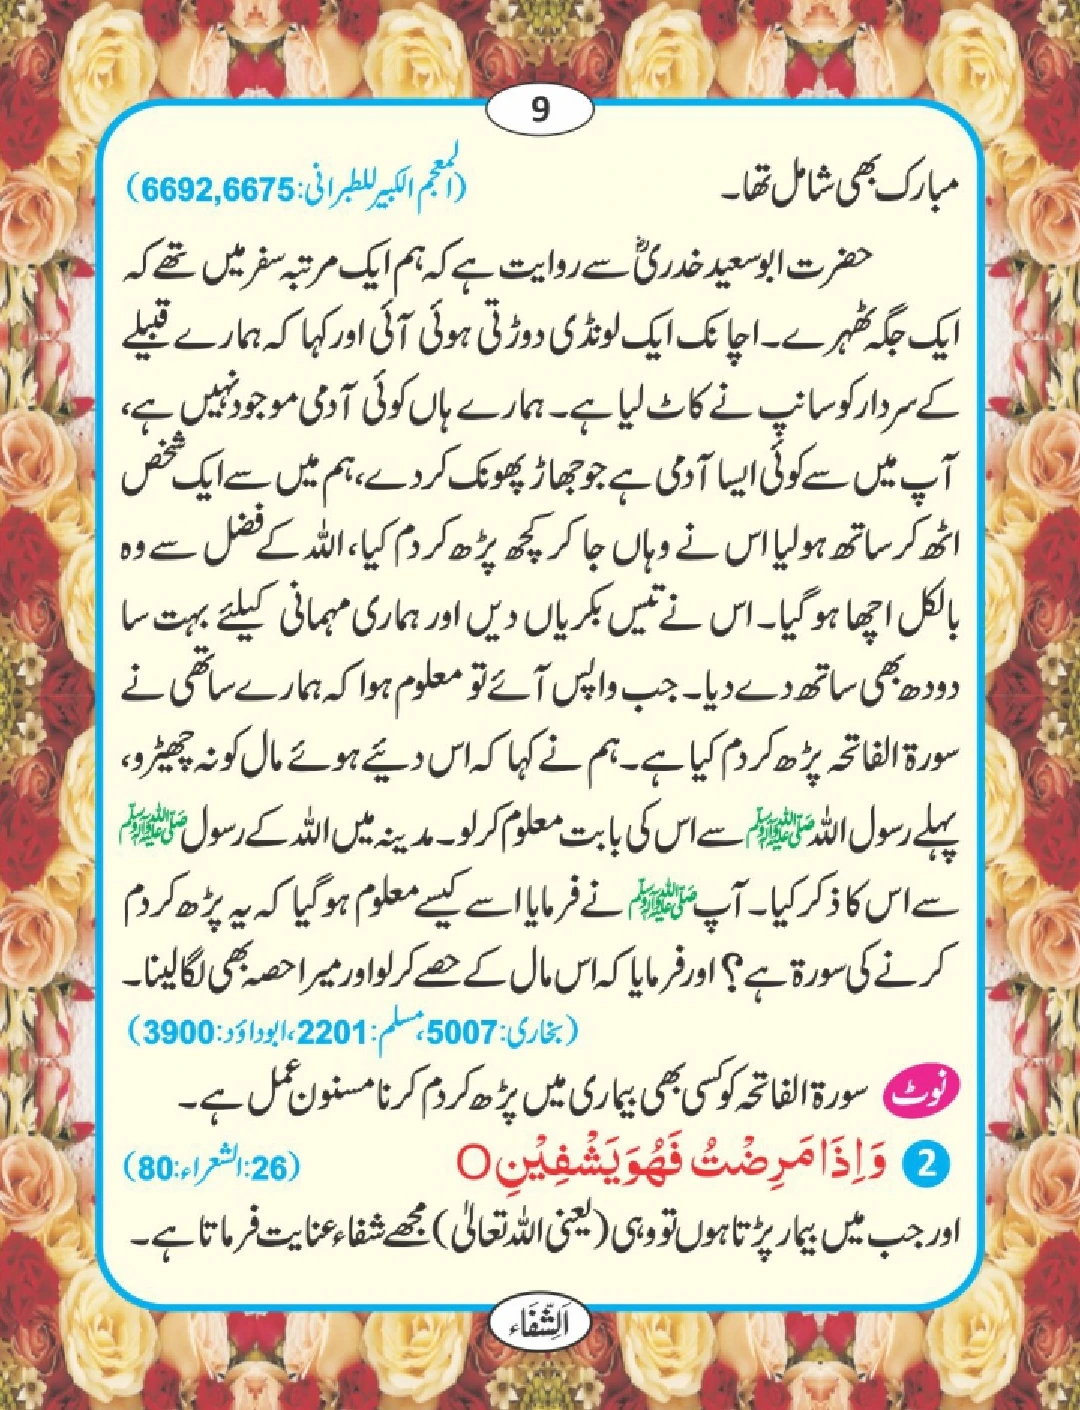 9
مبارک بھی شامل تھا۔ (المعجم الکبیر للطبرانی:6692,6675)
حضرت ابوسعید خدریؓ سے روایت ہے کہ ہم ایک مرتبہ سفر میں تھے کہ
ایک جگہ ٹھہرے۔ اچانک ایک لونڈی دوڑتی ہوئی آئی اور کہا کہ ہمارے قبیلے
کے سردار کو سانپ نے کاٹ لیا ہے۔ ہمارے ہاں کوئی آدمی موجود نہیں ہے،
آپ میں سے کوئی ایسا آدمی ہے جو جھاڑ پھونک کر دے، ہم میں سے ایک شخص
اٹھ کر ساتھ ہو لیا اس نے وہاں جا کر کچھ پڑھ کر دم کیا، اللہ کے فضل سے وہ
بالکل اچھا ہو گیا۔ اس نے تیس بکریاں دیں اور ہماری مہمانی کیلئے بہت سا
دودھ بھی ساتھ دے دیا۔ جب واپس آئے تو معلوم ہوا کہ ہمارے ساتھی نے
سورۃ الفاتحہ پڑھ کر دم کیا ہے۔ ہم نے کہا کہ اس دئیے ہوئے مال کو نہ چھیڑو،
پہلے رسول اللہ ﷺ سے اس کی بابت معلوم کرلو۔ مدینہ میں اللہ کے رسول ﷺ
سے اس کا ذکر کیا۔ آپ ﷺ نے فرمایا اسے کیسے معلوم ہو گیا کہ یہ پڑھ کر دم
کرنے کی سورۃ ہے؟ اور فرمایا کہ اس مال کے حصے کرلو اور میرا حصہ بھی لگا لینا۔
(بخاری:5007،مسلم:2201،ابوداؤد:3900)
نوٹ سورۃ الفاتحہ کو کسی بھی بیماری میں پڑھ کر دم کرنا مسنون عمل ہے۔
2 وَاِذَا مَرِضْتُ فَهُوَ يَشْفِيْنِ ○ (26:الشعراء:80)
اور جب میں بیمار پڑتا ہوں تو وہی (یعنی اللہ تعالیٰ) مجھے شفاء عنایت فرماتا ہے۔
اَلشِّفَاء